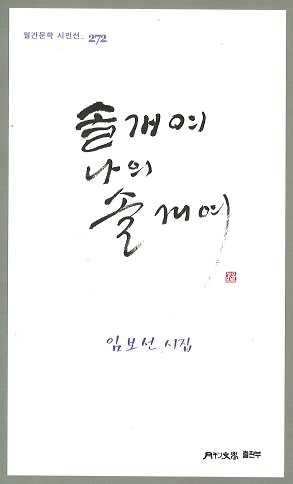 월간문학 시인선_ 272
솔개여
나의
솔개여
임보선 시집
月刊文學 출판부